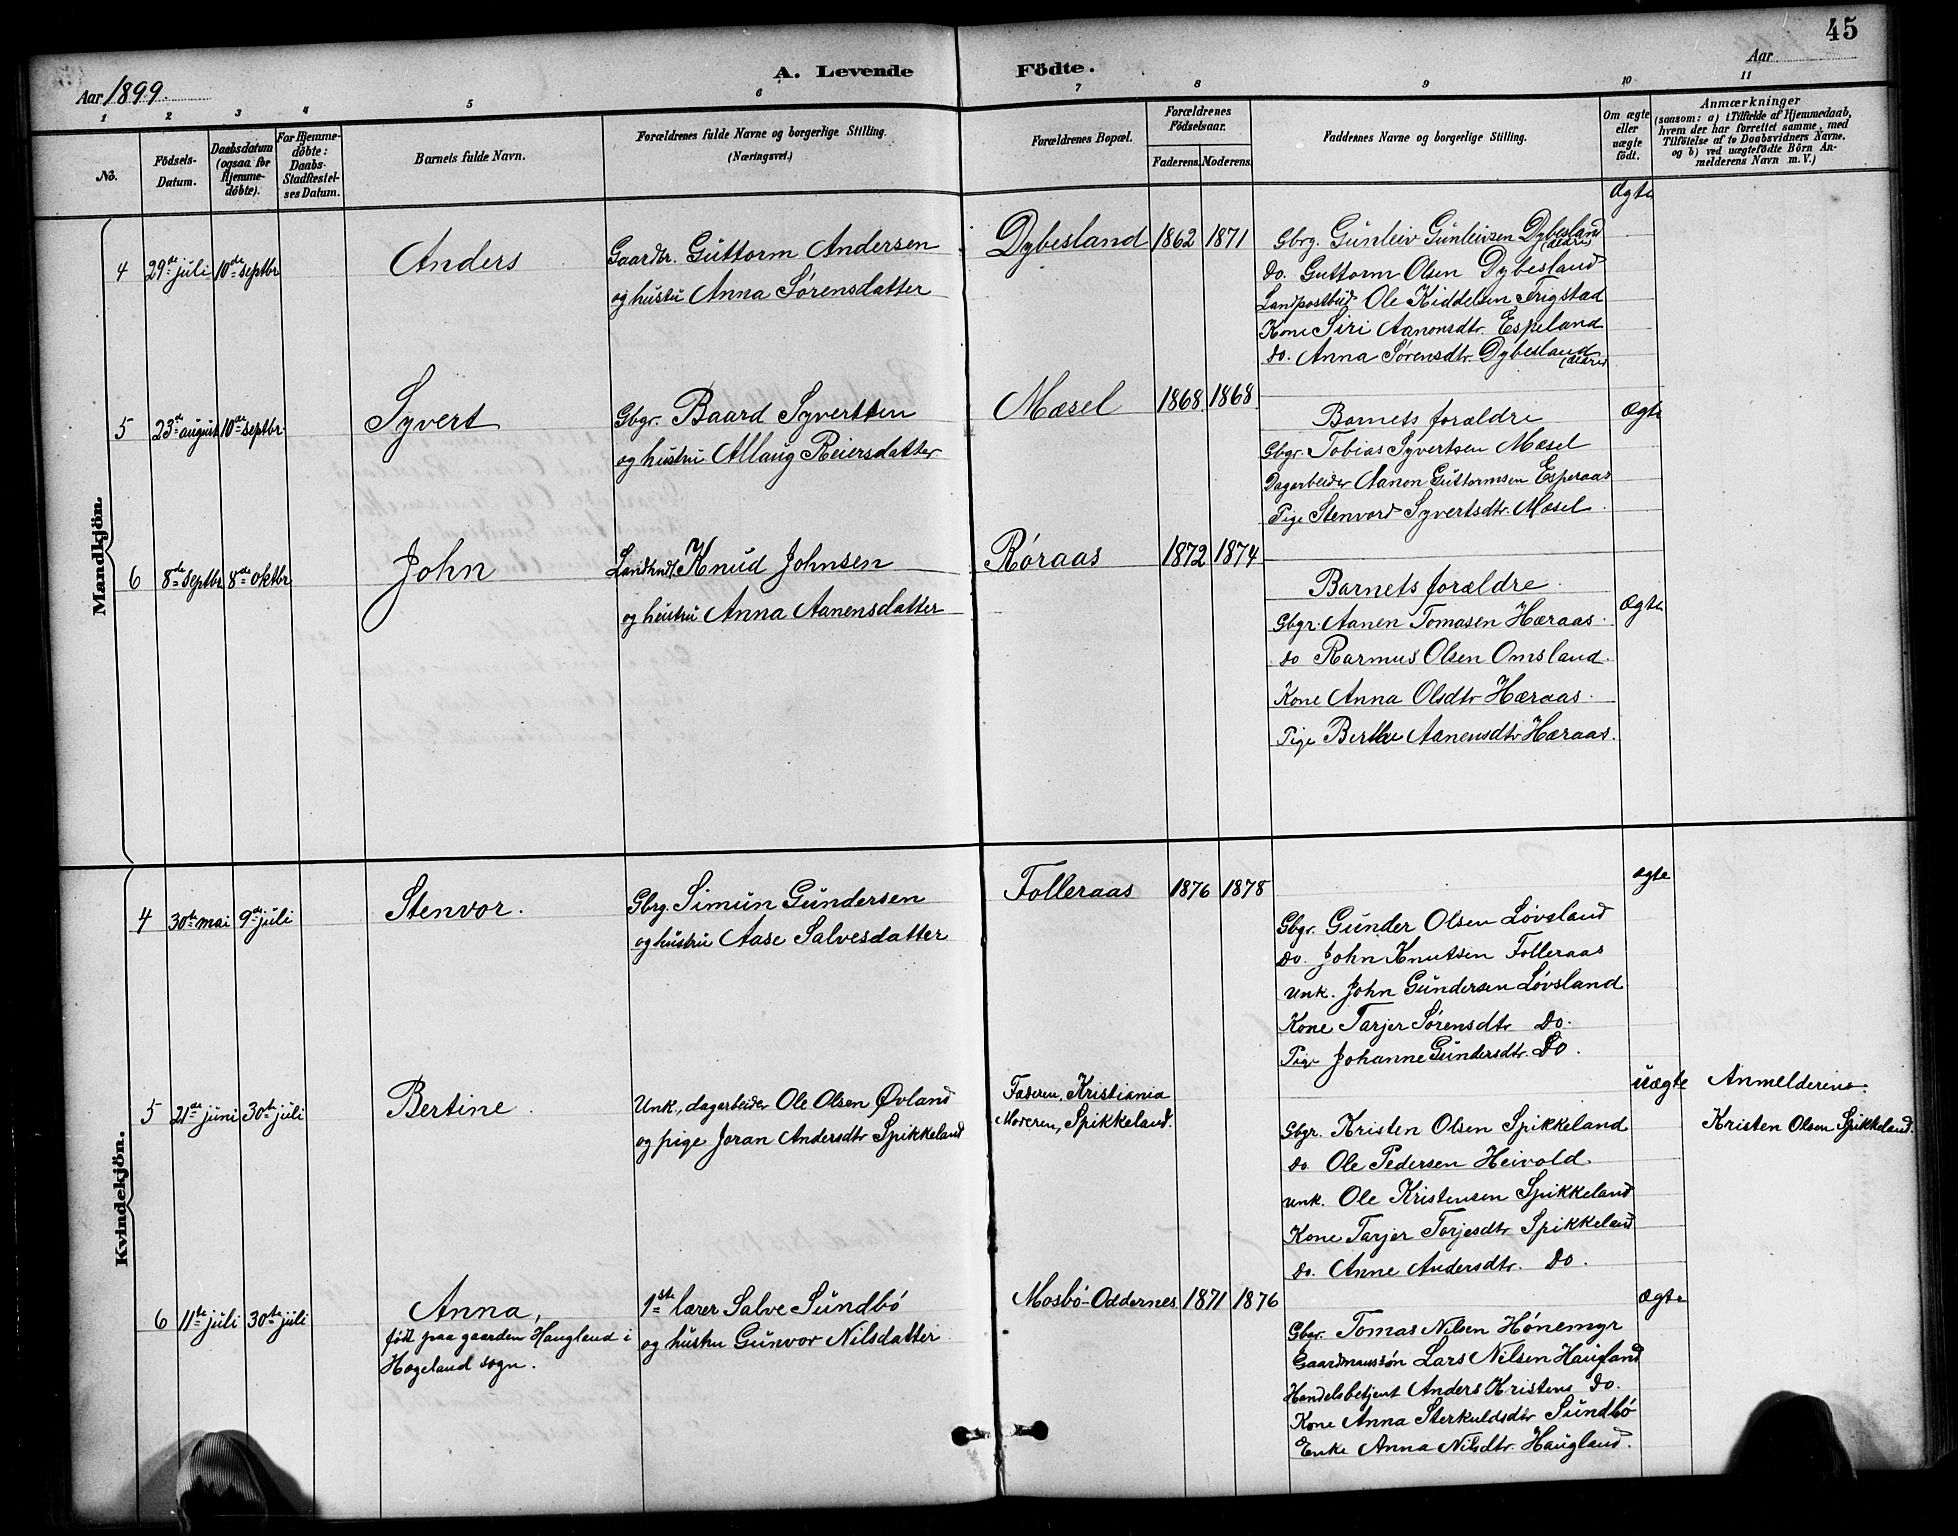 45
Aar 1899.
A. Levende Födte.
Aar
1 2 3 4 5 6 7 8 9 10 11
No.
Födsels-Datum.
Daabsdatum (ogsaa for Hjemmedöbte).
For Hjemmedöbte: Daabs-Stadfæstelses Datum.
Barnets fulde Navn.
Forældrenes fulde Navne og borgerlige Stilling. (Næringsvei.)
Forældrenes Bopæl.
Forældrenes Födselsaar.
Faderens. Moderens.
Faddernes Navne og borgerlige Stilling.
Om ægte eller uægte födt.
Anmærkninger
(saasom: a) i Tilfælde af Hjemmedaab,
hvem der har forrettet samme, med
Tilföielse af to Daabsvidners Navne,
og b) ved uægtefödte Börn Anmelderens Navn m. V.)
Mandkjön.
4 29de juli 10de septbr
Anders
Gaardbr. Guttorm Andersen
og hustru Anna Sørensdatter
Dybesland 1862 1871
Gbrg. Gunleiv Gunleivsen Dybesland (ældre)
do. Guttorm Olsen Dybesland
Landpostbud Ole Kiddelsen Trigstad
Kone Siri Aanonsdtr. Espeland
do. Anna Sørensdtr. Dybesland (ældre)
ægte
5 23de august 10de septbr.
Syvert
Gbgr. Baard Syvertsen
og hustru Allaug Reiersdatter
Mæsel 1868 1868
Barnets forældre
Gbgr. Tobias Syvertsen Mæsel
Dagarbeider Aanon Guttormsen Esperaas
Pige Stenvord Syvertsdtr. Mæsel
Ægte
6 8de septbr 8de oktbr
John
Landhndl. Knud Johnsen
og hustru Anna Aanensdatter
Røraas 1872 1874
Barnets forældre
Gbgr. Aanen Tomasen Hæraas
do Rasmus Olsen Omsland.
Kone Anna Olsdtr Hæraas.
Pige Berthe Aanensdtr Hæraas.
Ægte
Kvindekjön.
4 30te mai 9de juli
Stenvor.
Gbrg. Simun Gundersen
og hustru Aase Salvesdatter
Folleraas 1876 1878
Gbgr. Gunder Olsen Løvsland
do. John Knutsen Folleraas
Unk. John Gundersen Løvsland
Kone Tarjer Sørensdtr do.
Pige Johanne Gundersdtr. do.
ægte
5 21de juni 30te juli
Bertine.
Unk., dagarbeider Ole Olsen Øvland
og pige Joran Andersdtr Spikkeland
Faderen, Kristiania
Moderen, Spikkeland.
Gbgr. Kristen Olsen Spikkeland
do. Ole Pedersen Heivold.
Unk. Ole Kristensen Spikkeland
Kone Tarjer Torjesdtr Spikkeland
do. Anne Andersdtr. do.
uægte
Anmelderens
Kristen Olsen Spikkeland.
6 11te juli 30te juli
Anna,
født paa gaarden Haugland i
Hægeland sogn.
1ste lærer Salve Sundbö
og hustru Gunvor Nilsdatter
Mosbö-Oddernes 1871 1876
Gbgr. Tomas Nilsen Hónemyr
Gaardmanssön Lars Nilsen Haugland
Handelsbetjent Anders Kristens do.
Kone Anna Sterkuldsdtr Sundbö
Enke Anna Nilsdtr. Haugland.
ægte